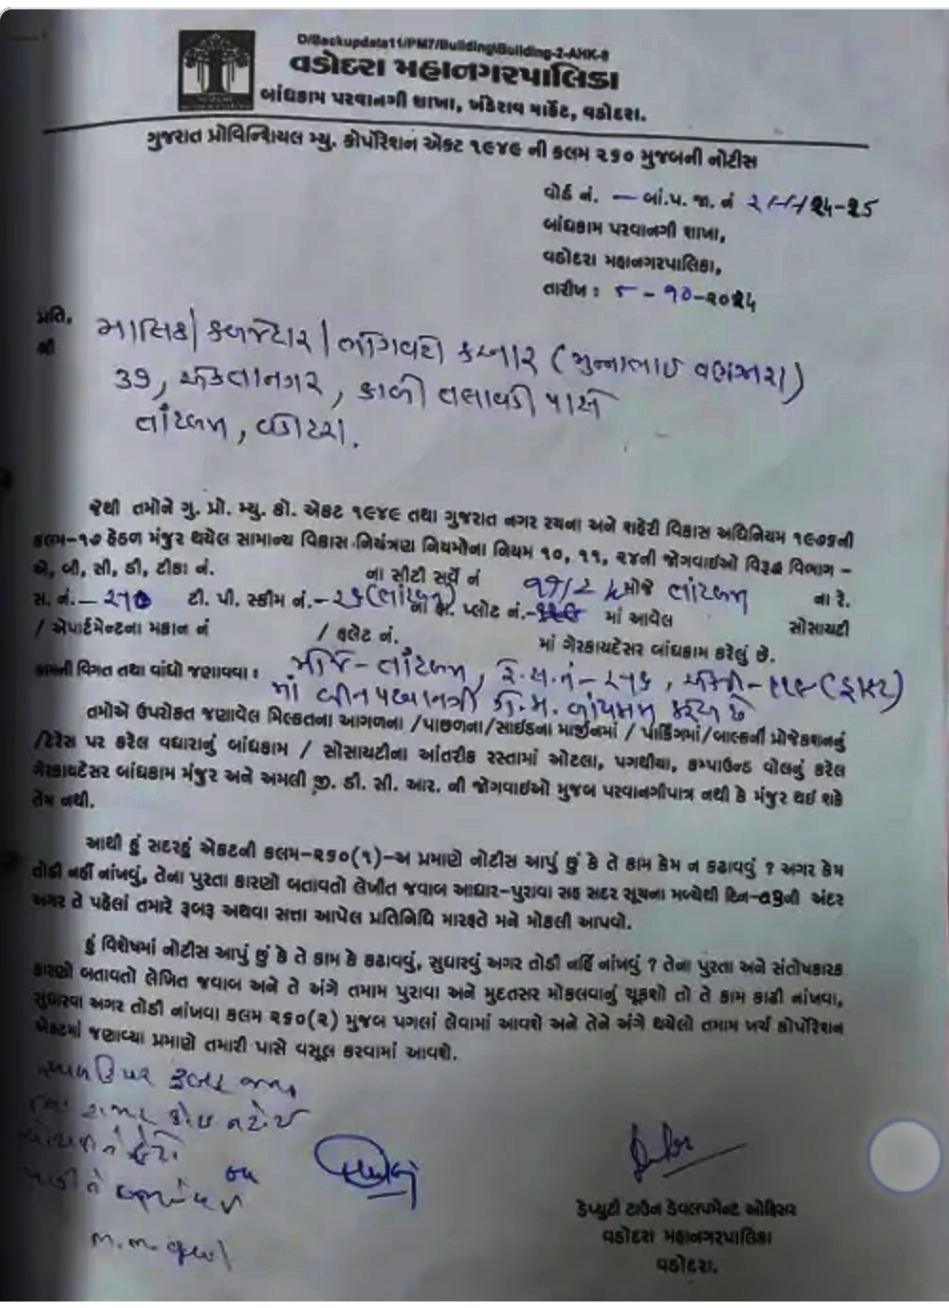 D/Backupdata11/PM7/Building\Building-2-AHK-8
વડોદરા મહાનગરપાલિકા
બાંધકામ પરવાનગી શાખા, ખંડેરાવ માર્કેટ, વડોદરા.
ગુજરાત પ્રોવિન્શિયલ મ્યુ. કોર્પોરેશન એક્ટ ૧૯૪૯ ની કલમ ૨૬૦ મુજબની નોટીસ
વોર્ડ નં. — બાં.પ. જા. નં ૨૪-૨૫
બાંધકામ પરવાનગી શાખા,
વડોદરા મહાનગરપાલિકા,
તારીખ : ૮ - ૧૦-૨૦૨૪
પ્રતિ,
શ્રી
માલિક/કબજેદાર/ભોગવટો કરનાર (મુન્નાભાઈ વણજારા)
39, એકતાનગર, કાળી તલાવડી પાસે
તાંદલજા, વડોદરા.
જેથી તમોને ગુ. પ્રો. મ્યુ. કો. એકટ ૧૯૪૯ તથા ગુજરાત નગર રચના અને શહેરી વિકાસ અધિનિયમ ૧૯૭૬ની
કલમ-૧૭ હેઠળ મંજુર થયેલ સામાન્ય વિકાસ નિયંત્રણ નિયમોના નિયમ ૧૦, ૧૧, ૨૪ની જોગવાઈઓ વિરૂદ્ધ વિભાગ –
એ, બી, સી, ડી, ટીકા નં. ના સીટી સર્વે નં મોજે તાંદલજા ના રે.
સ. નં.— ટી. પી. સ્કીમ નં.-૨૬(તાંદલજા) ના ફા. પ્લોટ નં.- માં આવેલ સોસાયટી
/ એપાર્ટમેન્ટના મકાન નં / ફલેટ નં. માં ગેરકાયદેસર બાંધકામ કરેલું છે.
કામની વિગત તથા વાંધો જણાવવા : મોજે-તાંદલજા, રે.સ.નં-
માં બીનપરવાનગી બાંધકામ કરેલ છે
તમોએ ઉપરોકત જણાવેલ મિલ્કતના આગળના /પાછળના/સાઈડના માર્જીનમાં / પાર્કિંગમાં/બાલ્કની પ્રોજેકશનનું
/ટેરેસ પર કરેલ વધારાનું બાંધકામ / સોસાયટીના આંતરીક રસ્તામાં ઓટલા, પગથીયા, કમ્પાઉન્ડ વોલનું કરેલ
ગેરકાયદેસર બાંધકામ મંજુર અને અમલી જી. ડી. સી. આર. ની જોગવાઈઓ મુજબ પરવાનગીપાત્ર નથી કે મંજુર થઈ શકે
તેમ નથી.
આથી હું સદરહું એકટની કલમ-૨૬૦(૧)-અ પ્રમાણે નોટીસ આપું છું કે તે કામ કેમ ન કઢાવવું ? અગર કેમ
તોડી નહીં નાંખવું, તેના પુરતા કારણો બતાવતો લેખીત જવાબ આધાર-પુરાવા સહ સદર સૂચના મળ્યેથી દિન-૦૭ની અંદર
અગર તે પહેલાં તમારે રૂબરૂ અથવા સત્તા આપેલ પ્રતિનિધિ મારફતે મને મોકલી આપવો.
હું વિશેષમાં નોટીસ આપું છું કે તે કામ કે કઢાવવું, સુધારવું અગર તોડી નહિં નાંખવું ? તેના પુરતા અને સંતોષકારક
કારણો બતાવતો લેખિત જવાબ અને તે અંગે તમામ પુરાવા અને મુદતસર મોકલવાનું ચૂકશો તો તે કામ કાઢી નાંખવા,
સુધારવા અગર તોડી નાંખવા કલમ ૨૬૦(૨) મુજબ પગલાં લેવામાં આવશે અને તેને અંગે થયેલો તમામ ખર્ચ કોર્પોરેશન
એક્ટમાં જણાવ્યા પ્રમાણે તમારી પાસે વસૂલ કરવામાં આવશે.
સ્થળ ઉપર રૂબરૂ જતા
ડેપ્યુટી ટાઉન ડેવલપમેન્ટ ઓફિસર
વડોદરા મહાનગરપાલિકા
વડોદરા.